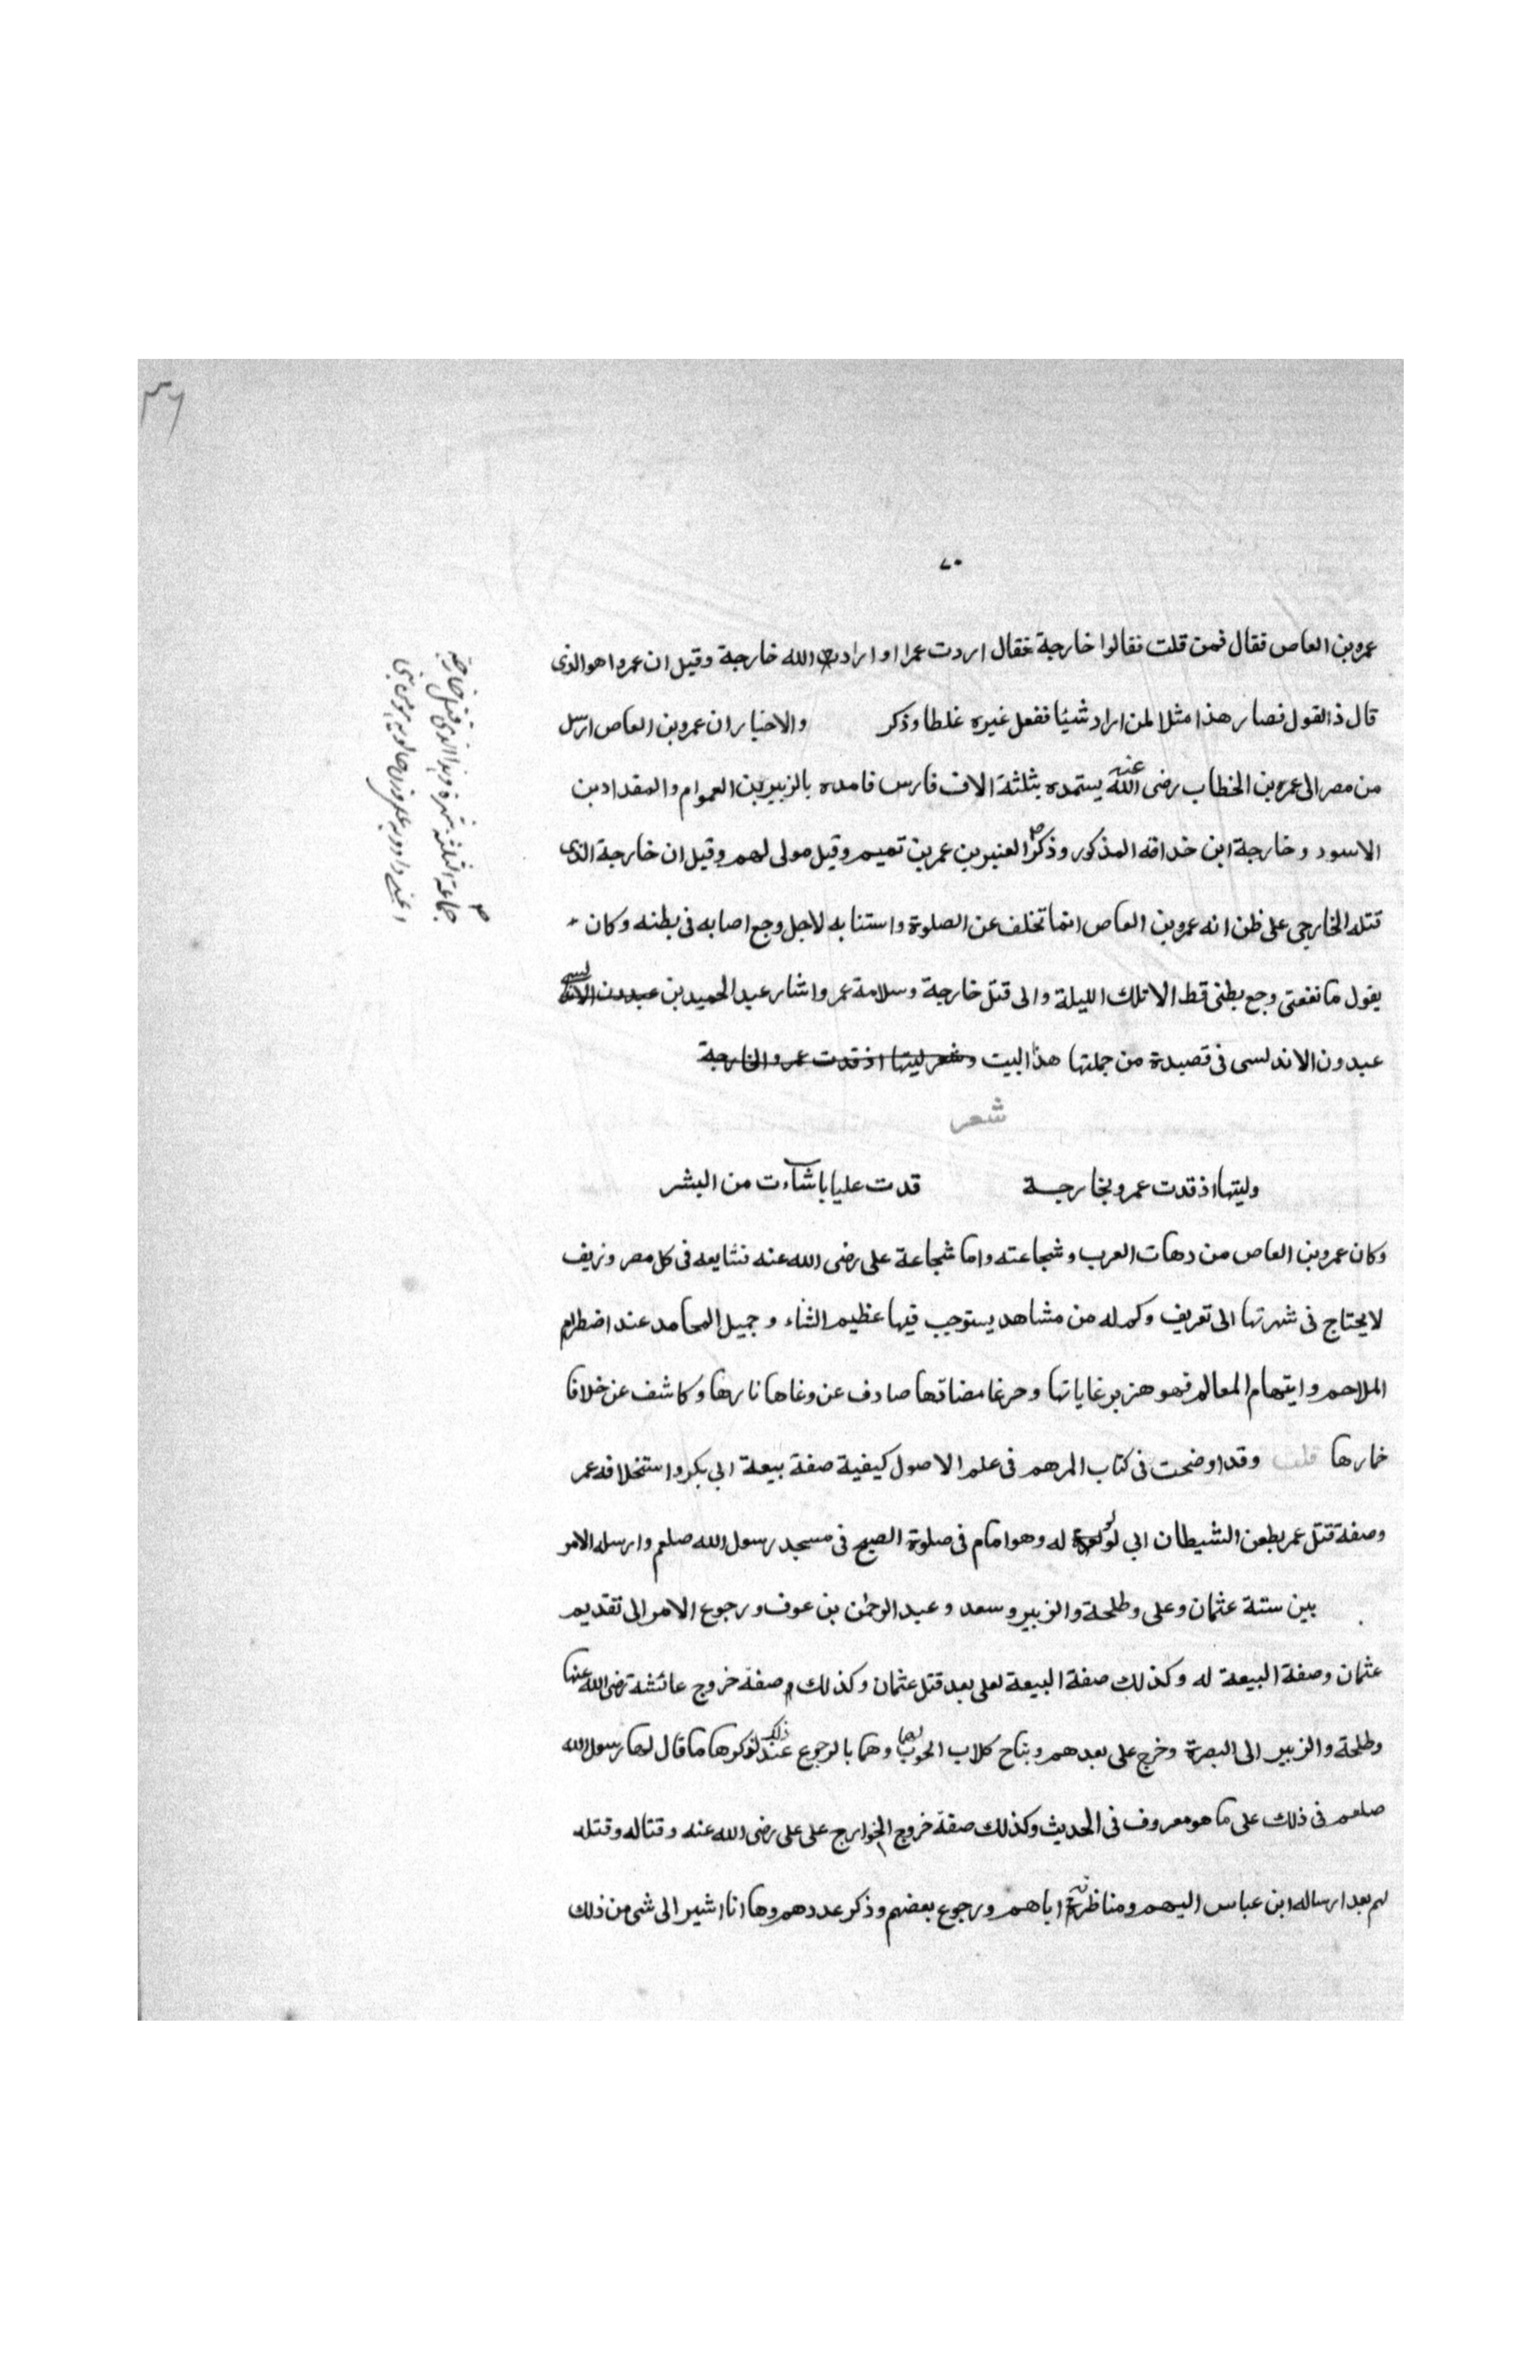 ٣٦
٧٠
عمرو بن العاص فقال فمن قلت فقالوا خارجة فقال اردت عمرا و اراد الله خارجة وقيل ان عمروا هو الذى
قال ذ القول فصار هذا مثلا لمن اراد شيئا ففعل غيره غلطا وذكر والاخبار ان عمرو بن العاص ارسل
من مصر الى عمر بن الخطاب رضى الله عنه يستمده بثلثة الاف فارس فامده بالزبير بن العوام والمقداد بن
الاسود وخارجة ابن خداقه المذكور وذكر العنبر بن عمر بن تميم وقيل مولى لهم وقيل ان خارجة الذى
قتله الخارجى على ظن انه عمرو بن العاص انما تخلف عن الصلوة واستنابه لاجل وجع اصابه فى بطنه وكان
يقول ما نفعنى وجع بطنى قط الا تلك الليلة والى قتل خارجة وسلامة عمر واشار عبد الحميد بن عبدون
عبدون الاندلسى فى قصيدة من جملتها هذا البيت وشعر ليتها اذ فدت عمرو الخارجة
شعر
وليتها اذ فدت عمرو بخارجة قدت عليا باشاءت من البشر
وكان عمرو بن العاص من دهات العرب وشجاعته واما شجاعة على رضى الله عنه فشايعه فى كل مصر وريف
لا يحتاج فى شهرتها الى تعريف وكم له من مشاهد يستوجب فيها عظيم الثناء و جميل المحامد عند اضطرام
الملاحم و ايتهام المعالم فهو هزبر غاياتها وحرغا مضاتها صادف عن وغاها نارها وكاشف عن خلافا
خمارها قلت وقد اوضحت فى كتاب المرهم فى علم الاصول كيفية صفة بيعة ابى بكر واستخلافه عمر
وصفة قتل عمر بطعن الشيطان ابى لولوة له وهو امام فى صلوة الصبح فى مسجد رسول الله صلعم وارسله الامر
بين ستة عثمان وعلى وطلحة والزبير وسعد و عبد الرحمن بن عوف ورجوع الامر الى تقديم
عثمان وصفة البيعة له وكذلك صفة البيعة لعلى بعد قتل عثمان وكذلك صفة خروج عائشة رضى الله عنها
وطلحة والزبير الى البصرة وخرج على بعدهم ونباح كلاب الحوب لهما وهما بالرجوع عند ذلك لذكرها ما قال لها رسول الله
صلعم فى ذلك على ما هو معروف فى الحديث وكذلك صفة خروج الخوارج على على رضى الله عنه وقتاله وقتله
لهم بعد ارساله ابن عباس اليهم ومناظرته اياهم ورجوع بعضهم وذكر عددهم وها انا اشير الى شى من ذلك